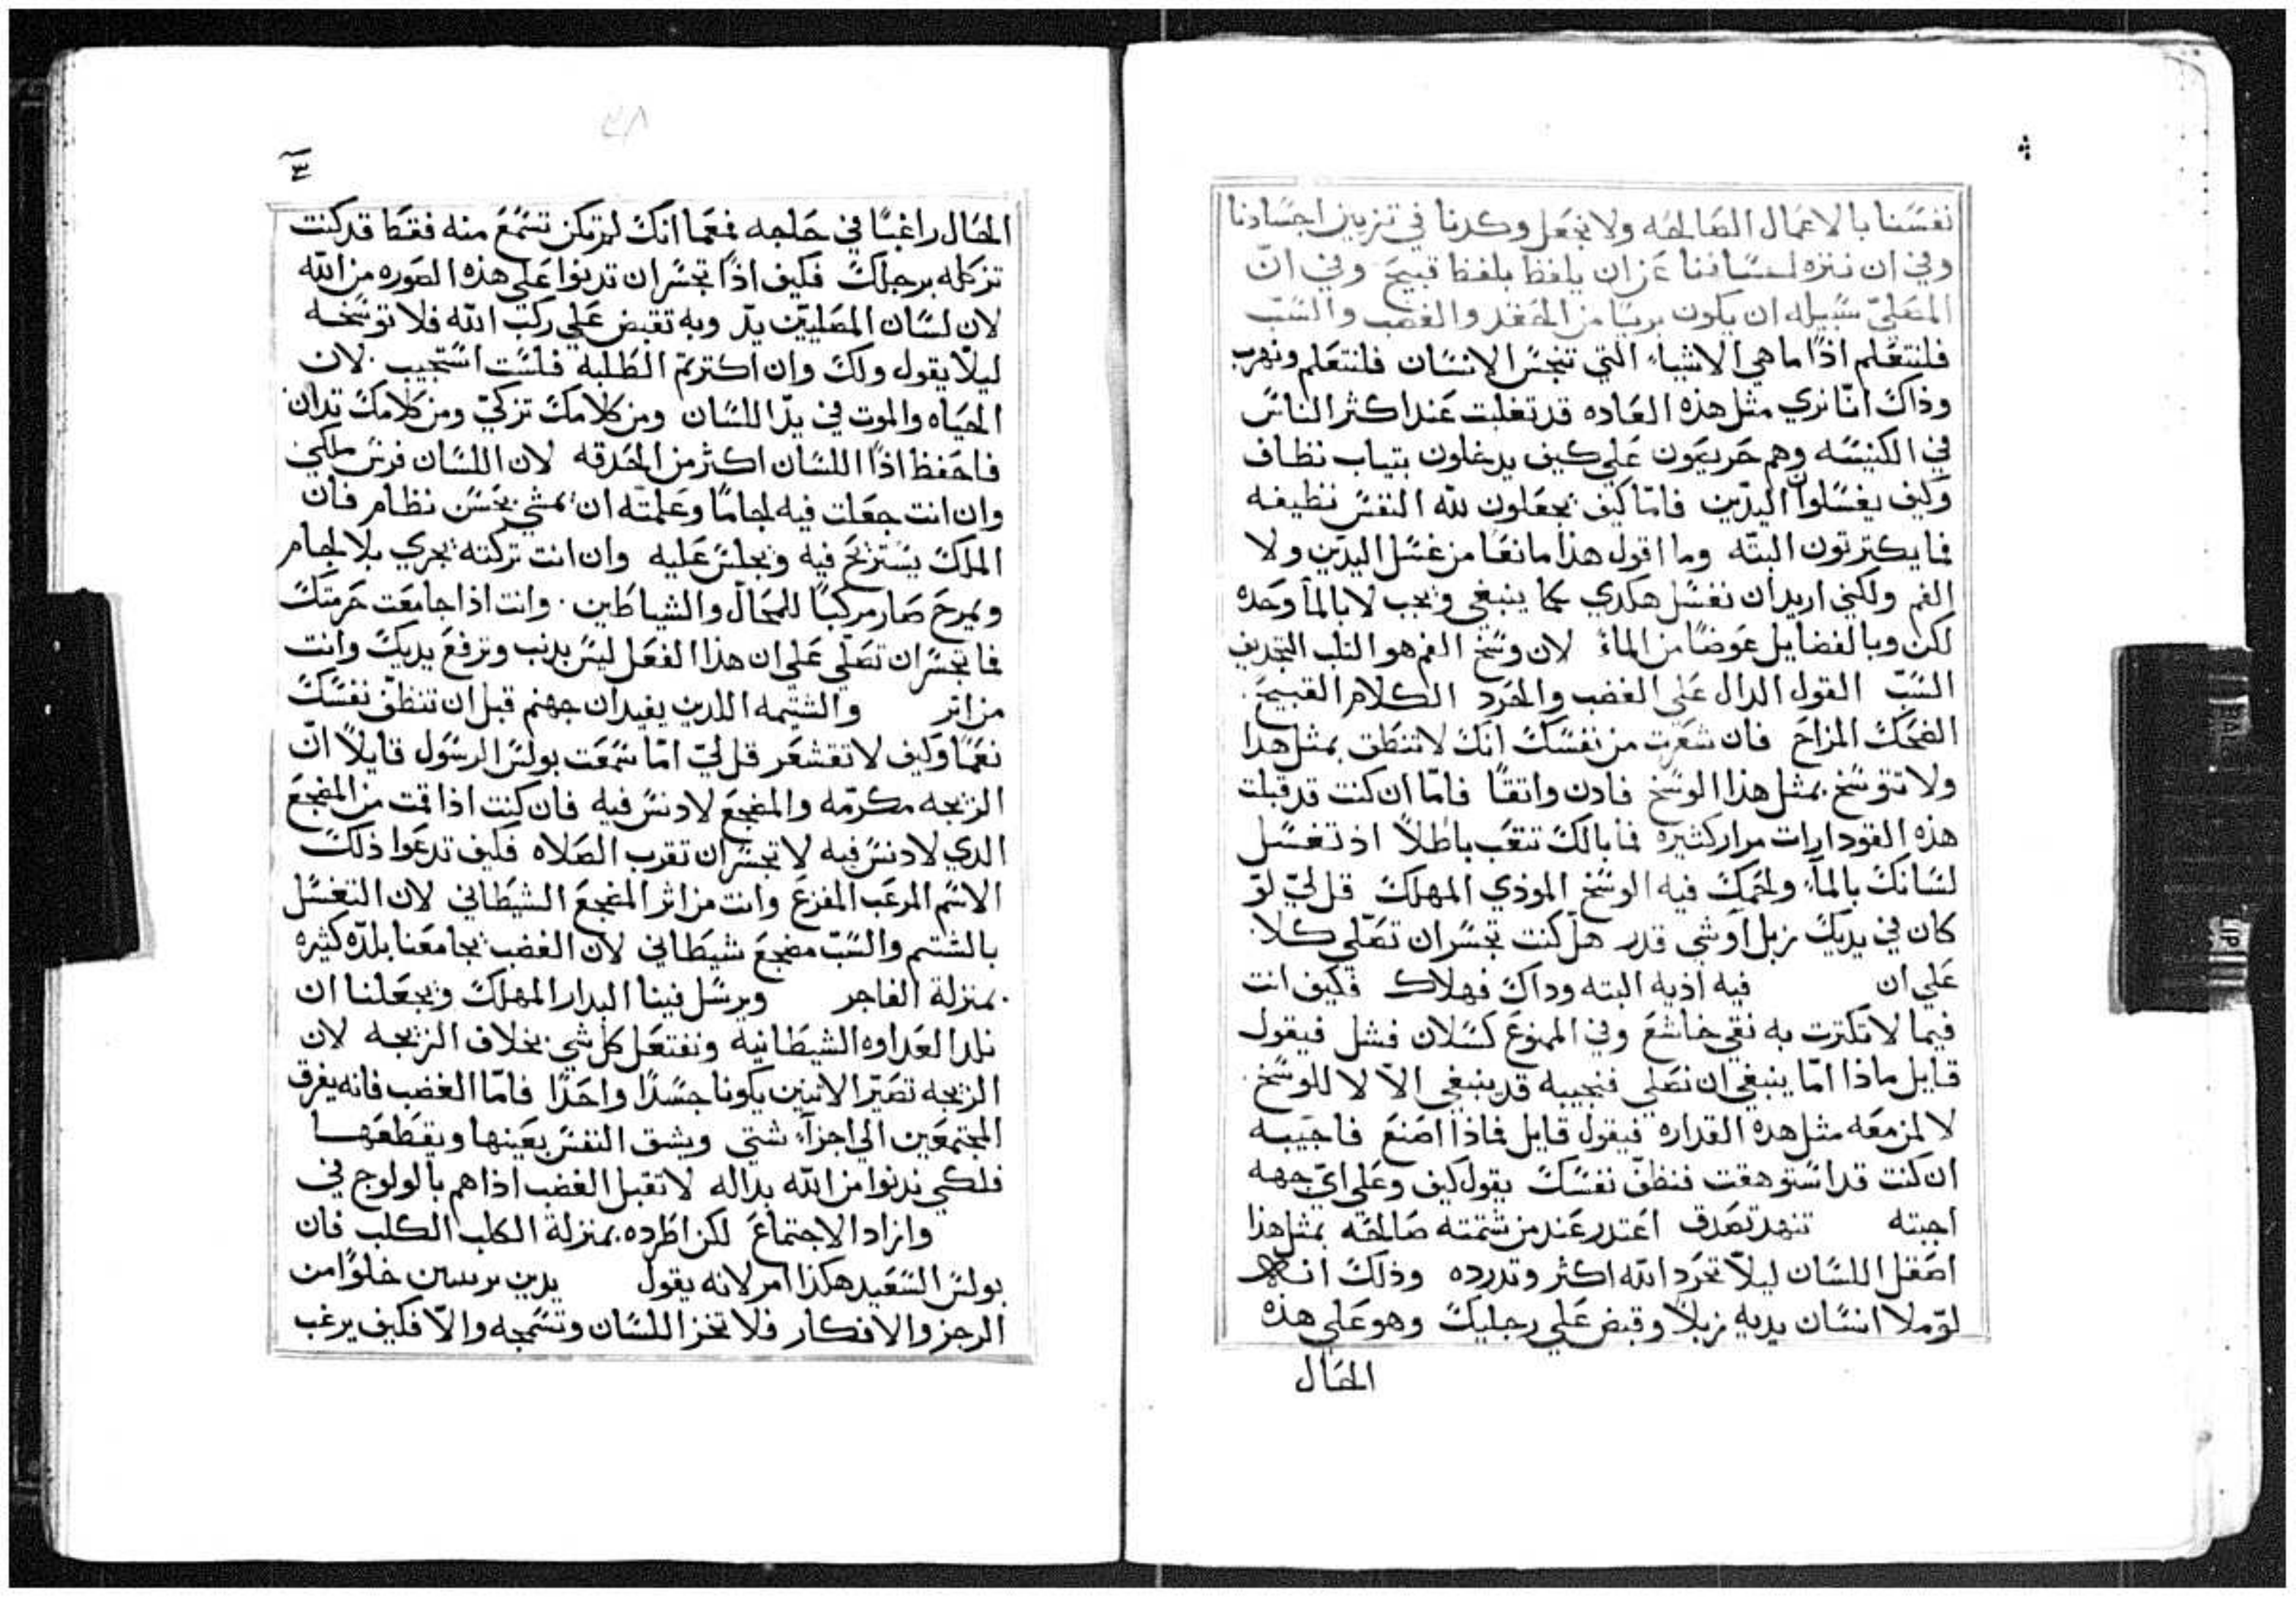 نفسنا بالاعمال الصالحه ولا نجعل وكدنا في تزيين اجسادنا
وفي ان ننزه لساننا عن ان يلفظ بلفظ قبيح وفي انّ
المصليّ سبيله ان يكون بريا من الحقد والغضب والسّبّ
فلنتعلم اذًا ما هي الاشياء التي تنجس الانسان فلنتعلم ونهرب
وذاك انّا نري مثل هذه العاده قد تغلبت عند اكثر الناس
في الكنيسه وهم حريصون علي كيف يدخلون بتياب نظاف
وكيف يغسلوان اليدّين فامّا كيف يجعلون لله النفس نظيفه
فما يكترتون البتّه وما اقول هذا مانعًا من غسل اليدّين ولا
الفم ولكني اريد ان نغسل هكدي كما ينبغي ويجب لا بالمأ وحده
لكن وبالفضايل عوضًا من الماءً لان وسخ الفم هو التلب التجديف
السّبّ القول الدال علي الغضب والحرد الكلام القبيح
الضحك المزاح فان شعرت من نفسك انك لا تنطق بمثل هدا
ولا تتوسخ بمثل هذا الوسخ فادن واتقًا فامّا ان كنت قد قبلت
هذه القودارات مرار كثيره فما بالك تتعب باطلاً اذ تغسل
لسانك بالمآء ولحمك فيه الوسخ الموذي المهلك قل ليّ لوّ
كان في يديك زبل اوشي قدر هل كنت تجسر ان تصّلي كلا
علي ان فيه اذيه البته وداك فهلاك فكيف انت
فيما لا تكترت به نقي خاشع وفي الممنوع كسلان فشل فيقول
قايل ماذا امّا ينبغي ان نصلي فنجيبه قد ينبغي الاّ لا للوسخ
لا لمن معه مثل هده القداره فيقول قايل فماذا اصنع فاجيبه
ان كنت قد استوهقت فنظف نفسك يقول كيف وعلي ايّ جهه
اجبته تنهد تصدق اعتدر عند من شتمته صالحه بمثل هذا
اصقل اللسان ليلاّ تحرد الله اكثر وتدرده وذلك انه
لوّ ملا انسان يديه زبلاً وقبض علي رجليك وهو علي هذه
الحال
٣
الحال راغبًا في حاجه فعما انك لم تكن تسمع منه فقط قد كنت
تزكله برجلك فكيف اذًا تجسر ان تدنوا علي هذه الصوره من الله
لان لسان المصليّين يدّ وبه تقبض علي ركب الله فلا توسخه
ليلاّ يقول ولك وان اكترتم الطلبه فلست استجيب لان
الحياه والموت في يدّ اللسان ومن كلامك تزكيّ ومن كلامك تدان
فاحفظ اذًا اللسان اكثر من الحدقه لان اللسان فرس ملكي
وان انت جعلت فيه لجامًا وعلمته ان يمشي بحسن نظام فان
الملك يستريح فيه ويجلس عليه وان انت تركته يجري بلا لجام
ويمرح صار مركبًا للمحال والشياطين وانت اذا جامعت حرمتك
فما تجسر ان تصّلي علي ان هذا الفعل ليس بدنب وترفع يديك وانت
من اتر والشتيمه اللدين يفيدان جهنم قبل ان تنظف نفسك
نعمًا وكيف لا تقشعر قل ليّ امّا سمعت بولس الرسول قايلاً انّ
الزيجه مكرّمه والمضجع لا دنس فيه فان كنت اذا قمت من المضجع
الدي لا دنس فيه لا تجسر ان تقرب الصلاه فكيف تدعوا ذلك
الاسم المرعب المفزع وانت من اثر المضجع الشيطاني لان التغسل
بالشتم والسّبّ مضجع شيطاني لان الغضب يجامعنا بلدّه كثيره
بمنزلة الفاجر ويرسل فينا البدار المهلك ويجعلنا ان
نلدا العداوه الشيطانيه ونفتعل كل شي بخلاف الزيجه لان
الزيجه تصيّر الاتنين يكونا جسدًا واحدًا فامّا الغضب فانه يفرق
المجتمعين الي اجزآء شتي ويشق النفس بعينها ويقطعها
فلكي ندنوا من الله بداله لا تقبل الغضب اذا هم بالولوج في
وازاد الاجتماع لكن اطرده بمنزلة الكلب الكلب فان
بولس السعيد هكذا امر لانه يقول يدين بريسين خلوًا من
الرجز والافكار فلا تخز اللسان وتسمجه والاّ فكيف يرغب